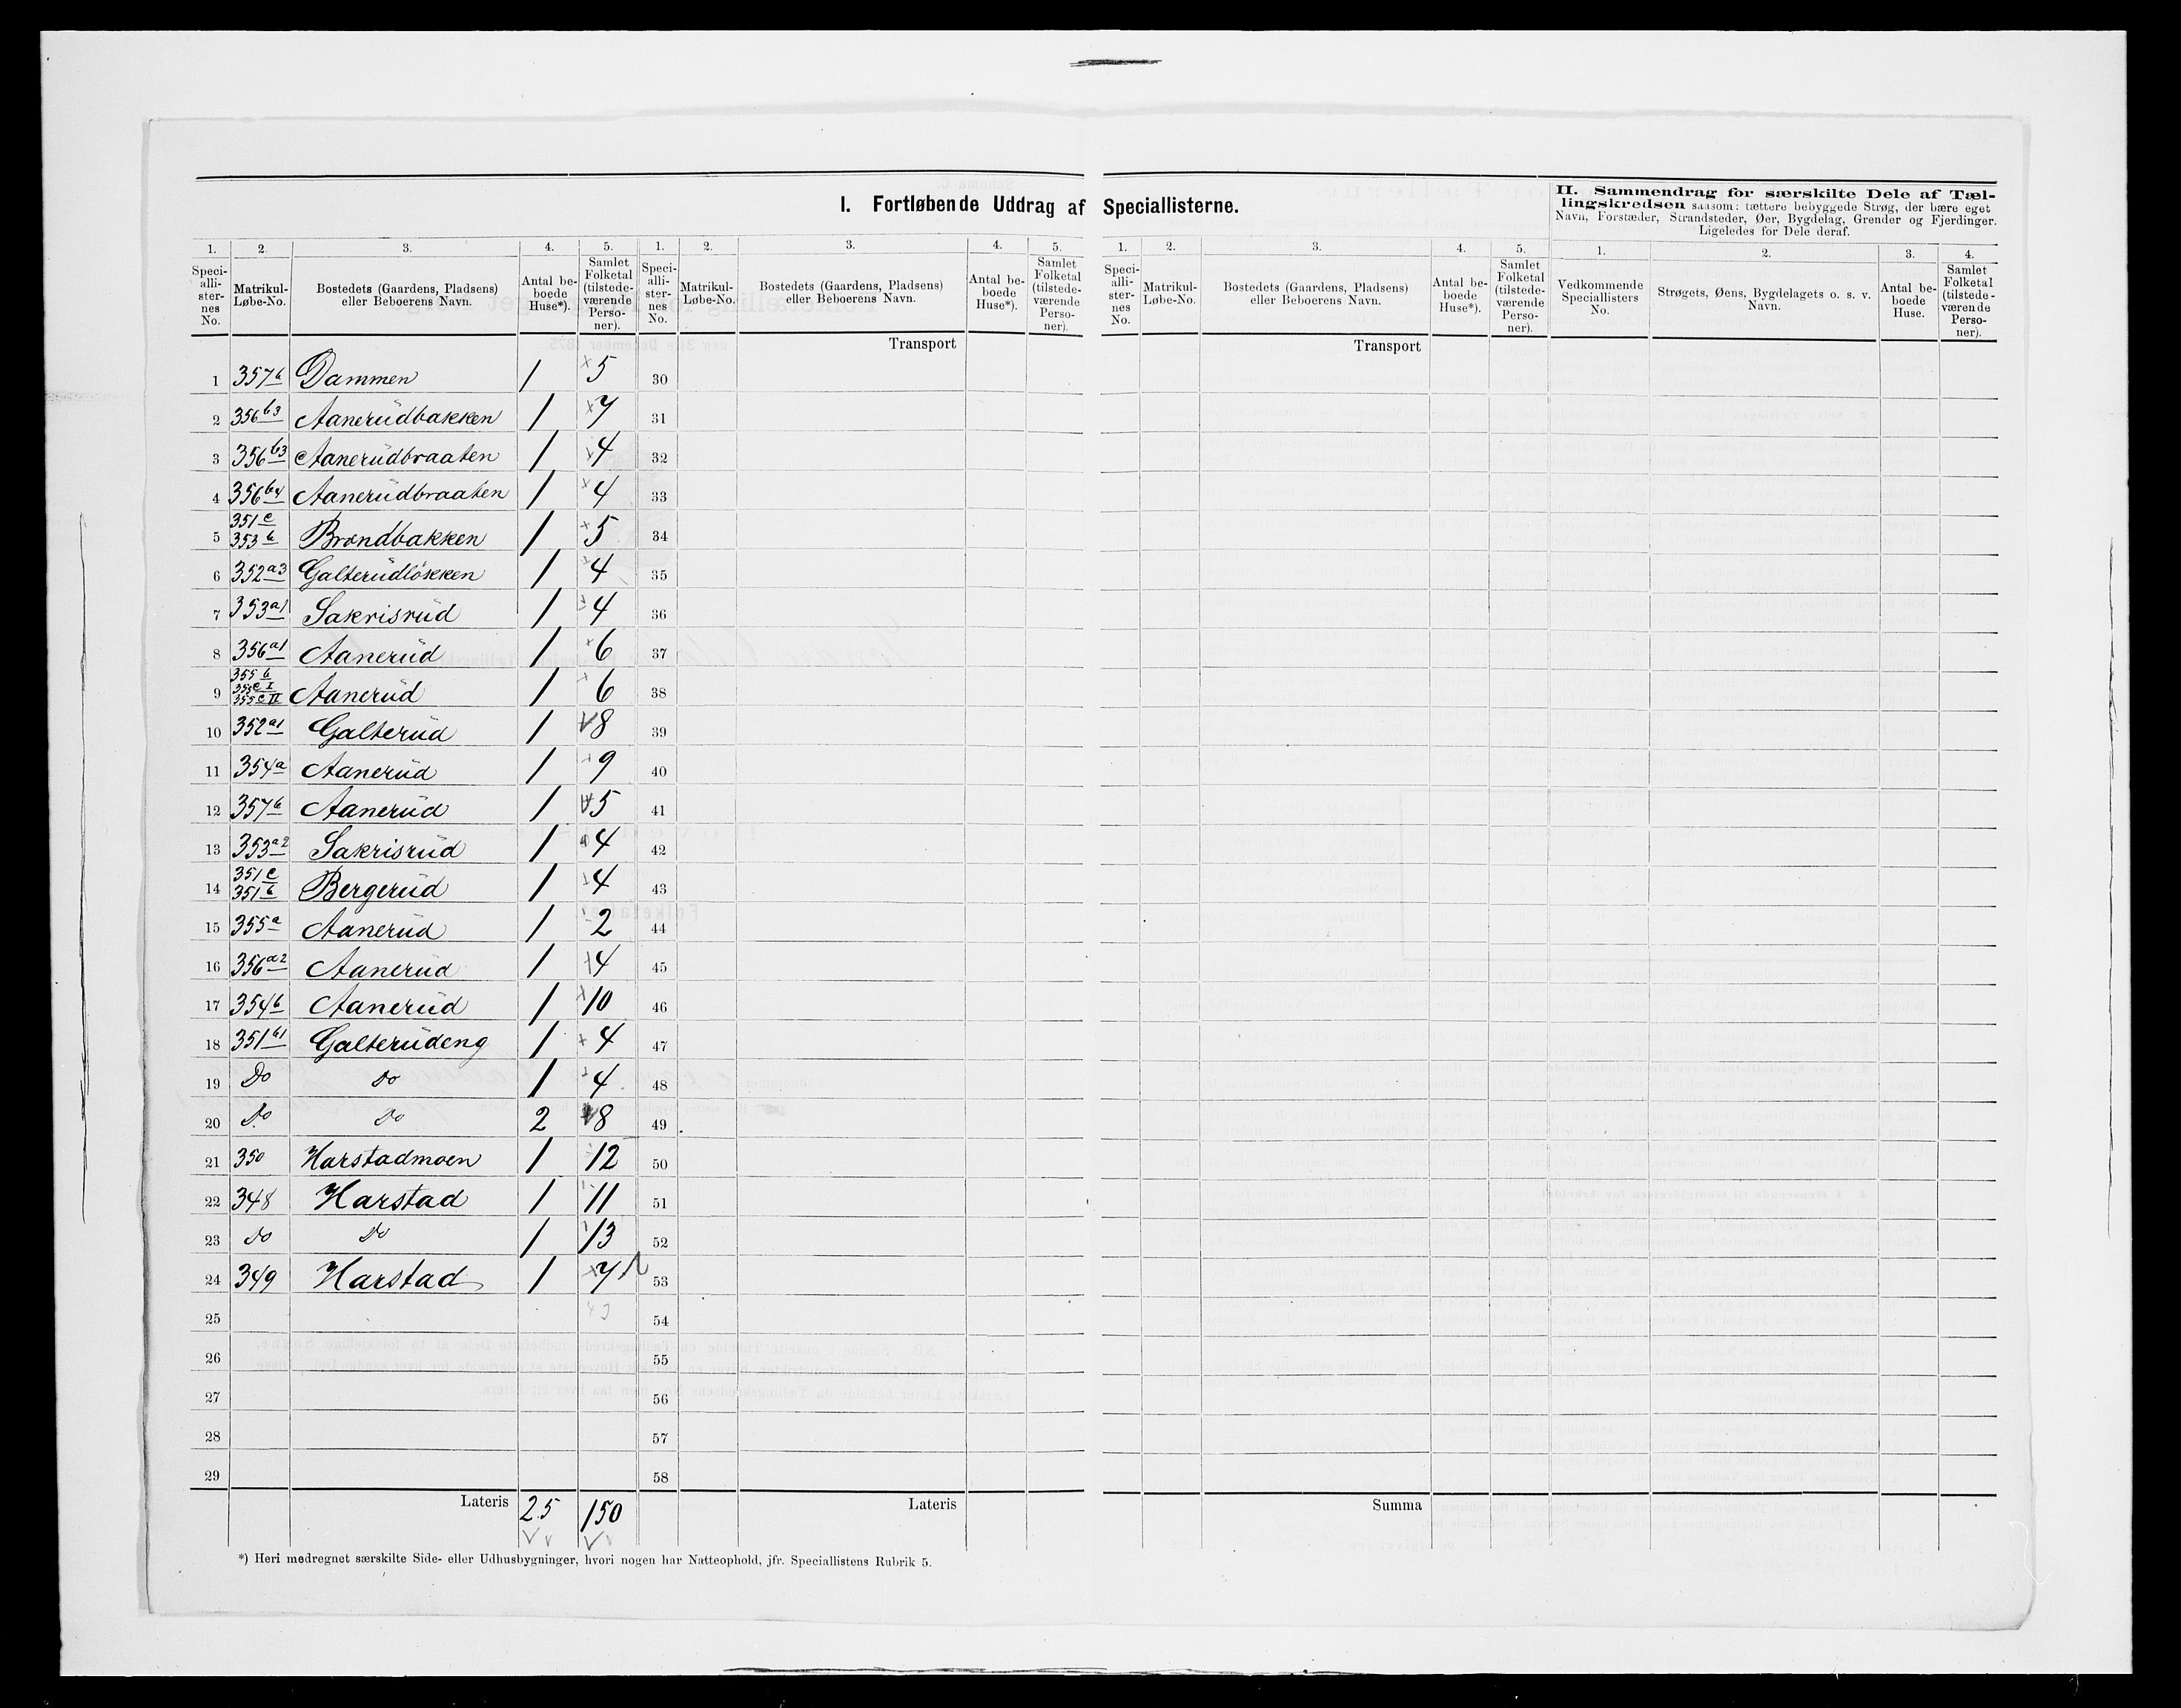 I. Fortløbende Uddrag af Speciallisterne.
II. Sammendrag for særskilte Dele af Tæl-
lingskredsen saasom: tættere bebyggede Strøg, der bære eget
Navn, Forstæder, Strandsteder, Øer, Bygdelag, Grender og Fjerdinger.
Ligeledes for Dele deraf.
1. 2. 3. 4. 5. 1. 2. 3. 4. 5. 1. 2. 3. 4. 5. 1. 2. 3. 4.
Speci-alli-ster-nes No. Matrikul-Løbe-No. Bostedets (Gaardens, Pladsens) eller Beboerens Navn. Antal be-boede Huse*). Samlet Folketal (tilstede-værende Perso-ner).
Speci-alli-ster-nes No. Matrikul-Løbe-No. Bostedets (Gaardens, Pladsens) eller Beboerens Navn. Antal be-boede Huse*). Samlet Folketal (tilstede-værende Perso-ner).
Speci-alli-ster-nes No. Matrikul-Løbe-No. Bostedets (Gaardens, Pladsens) eller Beboerens Navn. Antal be-boede Huse*). Samlet Folketal (tilstede-værende Perso-ner).
Vedkommende Speciallisters No. Strøgets, Øens, Bygdelagets o. s. v. Navn. Antal be-boede Huse. Samlet Folketal (tilstede-værende Perso-ner).
Transport Transport
1 357b Dammen 1 5 30
2 356b3 Aanerüdbakken 1 7 31
3 356b3 Aanerüdbraaten 1 4 32
4 356b4 Aanerüdbraaten 1 4 33
351c
5 353b Brøndbakken 1 5 34
6 352a3 Galterüdløkken 1 4 35
7 353a1 Sakrisrüd 1 4 36
8 356a1 Aanerüd 1 6 37
355b
355c I
9 355c II Aanerüd 1 6 38
10 352a1 Galterüd 1 8 39
11 354a Aanerüd 1 9 40
12 357b Aanerüd 1 5 41
13 353a2 Sakrisrüd 1 4 42
351c
14 351b Bergerüd 1 4 43
15 355a Aanerüd 1 2 44
16 356a2 Aanerüd 1 4 45
17 354b Aanerüd 1 10 46
18 351b1 Galterüdeng 1 4 47
19 Do Do 1 4 48
20 Do Do 2 8 49
21 350 Harstadmoen 1 12 50
22 348 Harstad 1 11 51
23 Do Do 1 13 52
24 349 Harstad 1 7 53
25 54
26 55
27 56
28 57
29 58
Lateris 25 150 Lateris Summa
*) Heri medregnet særskilte Side- eller Udhusbygninger, hvori nogen har Natteophold, jfr. Speciallistens Rubrik 5.